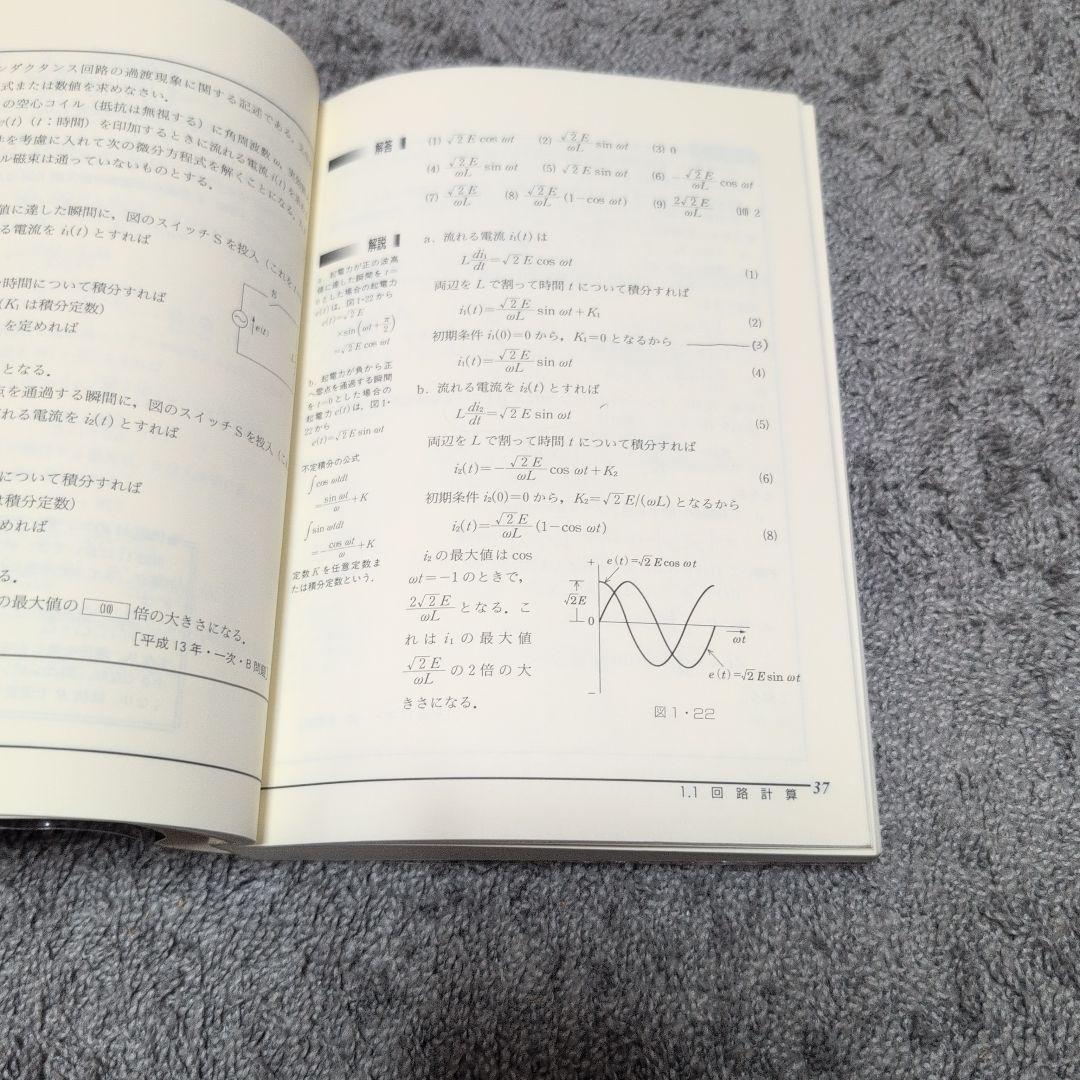 ンダクタンス回路の過渡現象に関する記述である.
式または数値を求めなさい.
の空心コイル (抵抗は無視する) に角周波数 ω,
(t) (t:時間) を印加するときに流れる電流 i(t) を
を考慮に入れて次の微分方程式を解くことになる.
ル磁束は通っていないものとする.
値に達した瞬間に, 図のスイッチSを投入 (これを
る電流を i₁(t) とすれば
時間について積分すれば
(K₁ は積分定数)
を定めれば
となる.
点を通過する瞬間に, 図のスイッチSを投入 (こ
れる電流を i₂(t) とすれば
について積分すれば
は積分定数)
めれば
る.
の最大値の (10) 倍の大きさになる.
[平成 13年・一次・B問題]
S
e(t)
解答
(1) √2 E cos ωt (2) √2 E/ωL sin ωt (3) 0
(4) √2 E/ωL sin ωt (5) √2 E sin ωt (6) −√2 E/ωL cos ωt
(7) √2 E/ωL (8) √2 E/ωL (1−cos ωt) (9) 2√2 E/ωL (10) 2
解説
a. 起電力が正の波高
値に達した瞬間を t=
0 とした場合の起電力
e(t)は, 図1・22 から
e(t)=√2 E
×sin(ωt+π/2)
=√2 E cos ωt
b. 起電力が負から正
へ零点を通過する瞬間
を t=0 とした場合の
起電力 e(t) は, 図1・
22から
e(t)=√2 E sin ωt
不定積分の公式
∫cos ωtdt
=sin ωt/ω+K
∫sin ωtdt
=−cos ωt/ω+K
定数 K を任意定数ま
たは積分定数という.
a. 流れる電流 i₁(t) は
L di₁/dt=√2 E cos ωt (1)
両辺を L で割って時間 t について積分すれば
i₁(t)=√2 E/ωL sin ωt+K₁ (2)
初期条件 i₁(0)=0 から, K₁=0 となるから (3)
i₁(t)=√2 E/ωL sin ωt (4)
b. 流れる電流を i₂(t) とすれば
L di₂/dt=√2 E sin ωt (5)
両辺を L で割って時間 t について積分すれば
i₂(t)=−√2 E/ωL cos ωt+K₂ (6)
初期条件 i₂(0)=0 から, K₂=√2 E/(ωL) となるから
i₂(t)=√2 E/ωL (1−cos ωt) (8)
i₂ の最大値は cos
ωt=−1 のときで,
2√2 E/ωL となる. こ
れは i₁ の最大値
√2 E/ωL の2倍の大
きさになる.
+
e(t)=√2 E cos ωt
√2E
0
ωt
e(t)=√2 E sin ωt
−
図1・22
1.1 回路計算 37